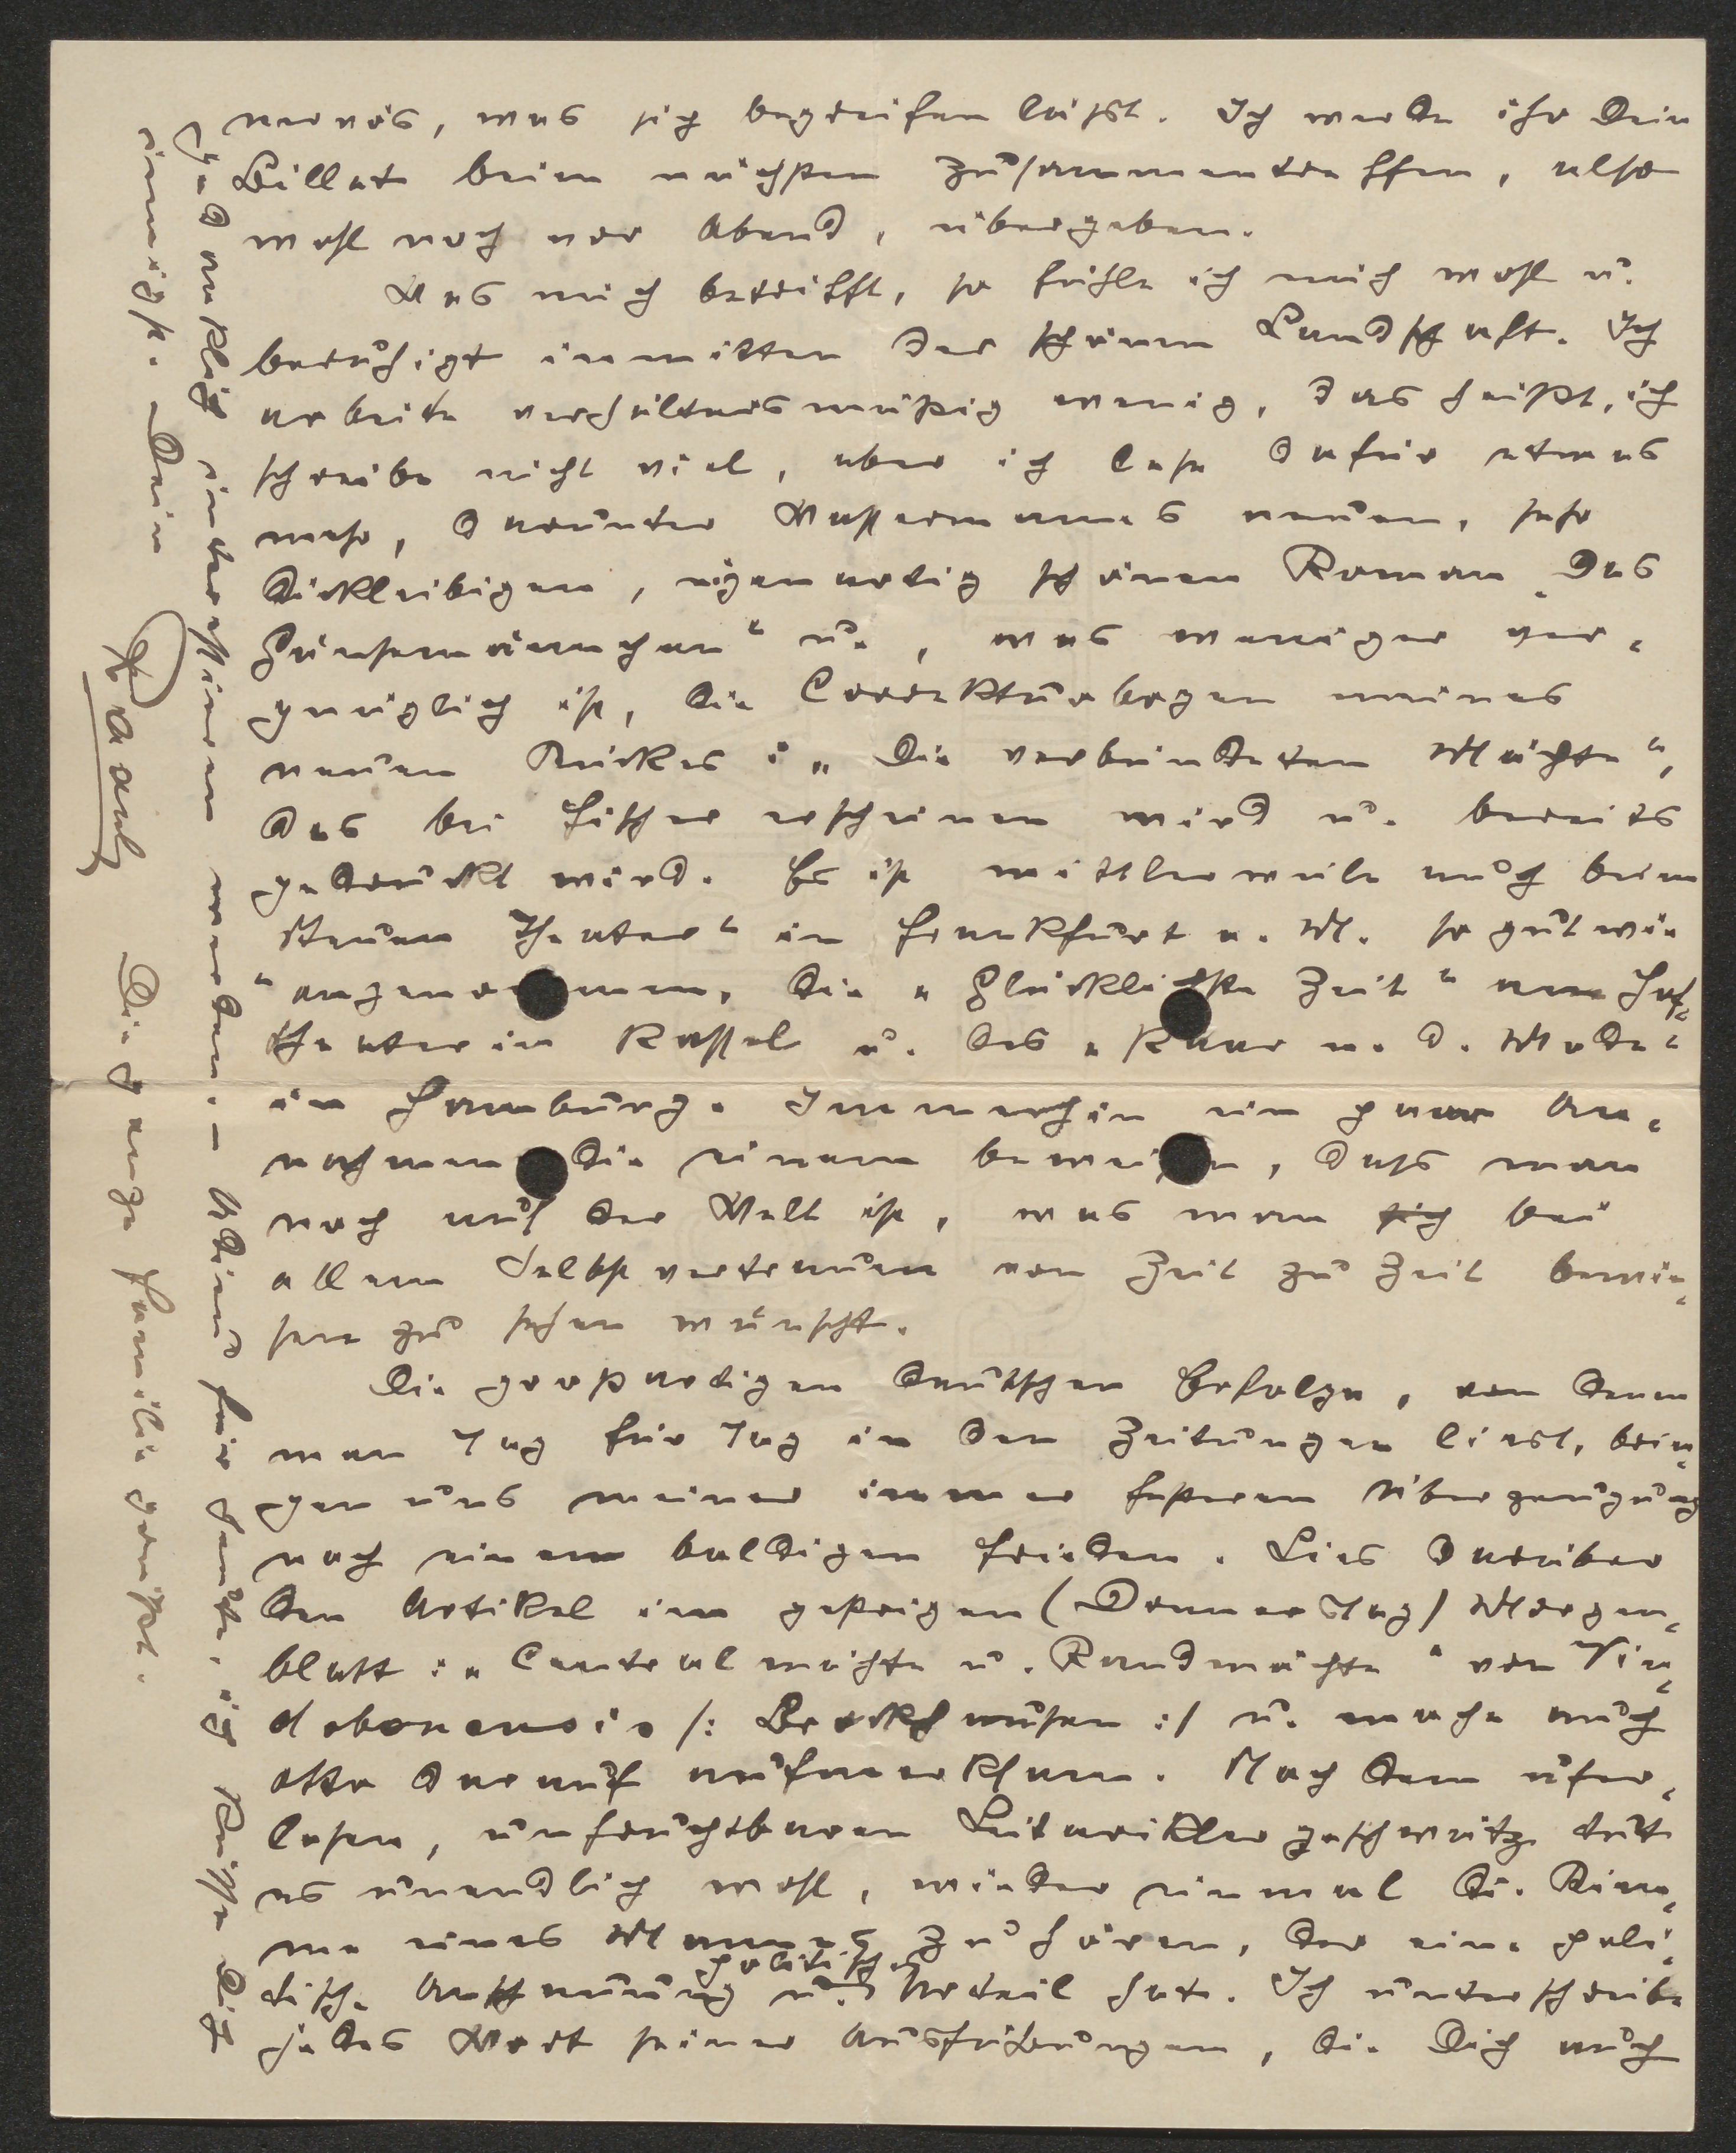 nervös, was sich begreifen läßt. Ich werde ihr Dein
Billet beim nächsten Zusammentreffen, also
wohl noch vor Abend, übergeben.
Was mich betrifft, so fühle ich mich wohl u.
beruhigt inmitten der schönen Landschaft. Ich
arbeite verhältnismäßig wenig, das heißt, ich
schreibe nicht viel, aber ich lese dafür etwas
mehr, darunter Wassermanns neuen, sehr
dickleibigen, eigenartig schönen Roman „Das
Gänsemännchen“ u., was weniger ver-
gnüglich ist, die Correkturbogen meines
neuen Stückes: „Die verbündeten Mächte“,
das bei Fischer erscheinen wird u. bereits
gedruckt wird. Es ist mittlerweile auch beim
„Neuen Theater“ in Frankfurt a. M. so gut wie
angenommen, die „Glücklichste Zeit“ am Hof-
theater in Kassel u. das „Paar n. d. Mode“
in Hamburg. Immerhin ein paar An-
nahmen, die einem beweisen, daß man
noch auf der Welt ist, was man sich bei
allem Selbstvertrauen von Zeit zu Zeit bewie-
sen zu sehen wünscht.
Die großartigen deutschen Erfolge, von denen
man Tag für Tag in den Zeitungen liest, brin-
gen uns meiner immer festeren Überzeugung
nach einem baldigen Frieden. Lies darüber
den Artikel im gestrigen (Donnerstag) Morgen-
blatt: „Centralmächte u. Randmächte“ von Vin-
dobonensis /: Brockhausen :/ u. mache auch
Otto darauf aufmerksam. Nach dem ufer-
losen, unfruchtbaren Leitartiklergeschwätz tut
es unendlich wohl, wieder einmal die Stim-
me eines Mannes zu hören, der eine poli-
tische Anschauung u. politisches Urteil hat. Ich unterschreibe
jedes Wort seiner Ausführungen, die Dich auch
gedanklich interessieren werden. – Adieu für heute, ich küsse Dich
innigst. Dein
Raoul
Die ganze Familie grüßt.